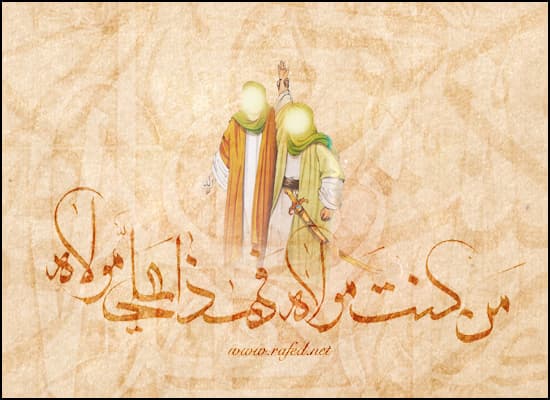 من كنت مولاه فهذا علي مولاه
www.rafed.net